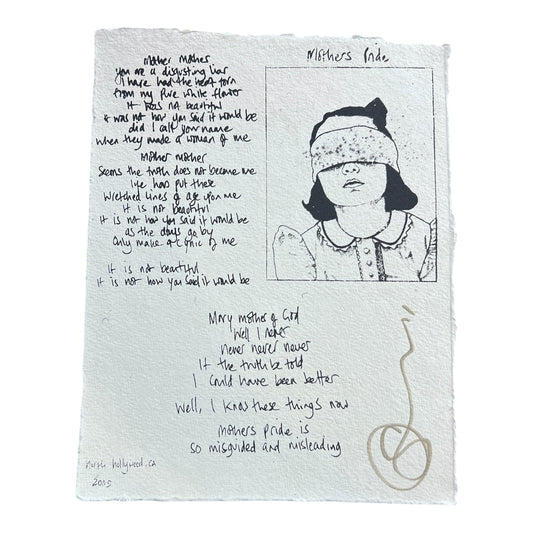 Mothers Pride
Mother Mother
you are a disgusting liar
I have had the heart torn
from my pure white flower
It was not beautiful
it was not how you said it would be
did I call your name
when they made a woman of me
Mother mother
Seems the truth does not become me
life has put these
wretched lines of age upon me
It is not beautiful
It is not how you said it would be
as the days go by
only make a cynic of me
It is not beautiful
It is not how you said it would be
Mary mother of God
Well I never
never never never
If the truth be told
I could have been better
Well, I know these things now
Mothers pride is
so misguided and misleading
north hollywood, ca
2005